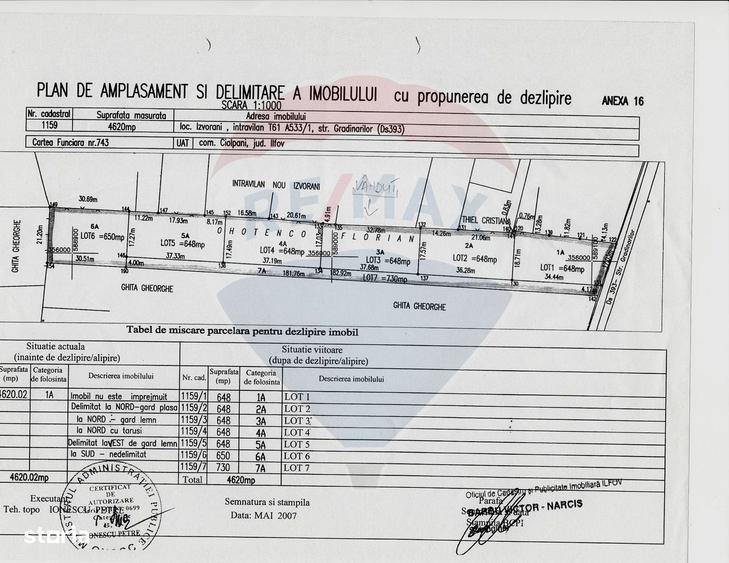 PLAN DE AMPLASAMENT SI DELIMITARE A IMOBILULUI cu propunerea de dezlipire
ANEXA 16
SCARA 1:1000
Nr. cadastral
Suprafata masurata
Adresa imobilului
1159
4620mp
loc. Izvorani , intravilan T61 A533/1, str. Gradinarilor (Ds393)
Cartea Funciara nr.743
UAT
com. Ciolpani, jud. Ilfov
RE/MAX
INTRAVILAN NOU IZVORANI
VANDUT
THIEL CRISTIANA
30.69m
11.22m
17.93m
8.17m
16.58m
20.61m
4.91m
32.78m
14.26m
21.06m
0.83m
0.76m
13.28m
11.82m
4.13m
GHITA GHEORGHE
21.20m
6A
LOT6 =650mp
17.27m
5A
LOT5 =648mp
17.49m
OHOTENCO FLORIAN
4A
LOT4 =648mp
3A
LOT3 =648mp
17.57m
2A
LOT2 =648mp
18.71m
1A
LOT1 =648mp
356000
588900
589000
589100
30.51m
4.00m
37.33m
37.19m
7A
181.76m
82.92m
37.68m
LOT7 =730mp
36.28m
34.44m
4.17
Ds 393- Str. Gradinarilor
GHITA GHEORGHE
GHITA GHEORGHE
Tabel de miscare parcelara pentru dezlipire imobil
Situatie actuala
(inainte de dezlipire/alipire)
Situatie viitoare
(dupa de dezlipire/alipire)
Suprafata
(mp)
Categoria
de folosinta
Descrierea imobilului
Nr. cad.
Suprafata
(mp)
Categoria
de folosinta
Descrierea imobilului
4620.02 1A Imobil nu este imprejmuit 1159/1 648 1A LOT 1
Delimitat la NORD-gard plasa 1159/2 648 2A LOT 2
la NORD - gard lemn 1159/3 648 3A LOT 3
la NORD cu tarusi 1159/4 648 4A LOT 4
Delimitat la VEST de gard lemn 1159/5 648 5A LOT 5
la SUD - nedelimitat 1159/6 650 6A LOT 6
1159/7 730 7A LOT 7
4620.02mp Total 4620mp
Executant
Teh. topo IONESCU PETRE
CERTIFICAT
DE
AUTORIZARE
IONESCU PETRE
Semnatura si stampila
Data: MAI 2007
Oficiul de Cadastru si Publicitate Imobiliară ILFOV
Parafa
BARBU VICTOR - NARCIS
storia